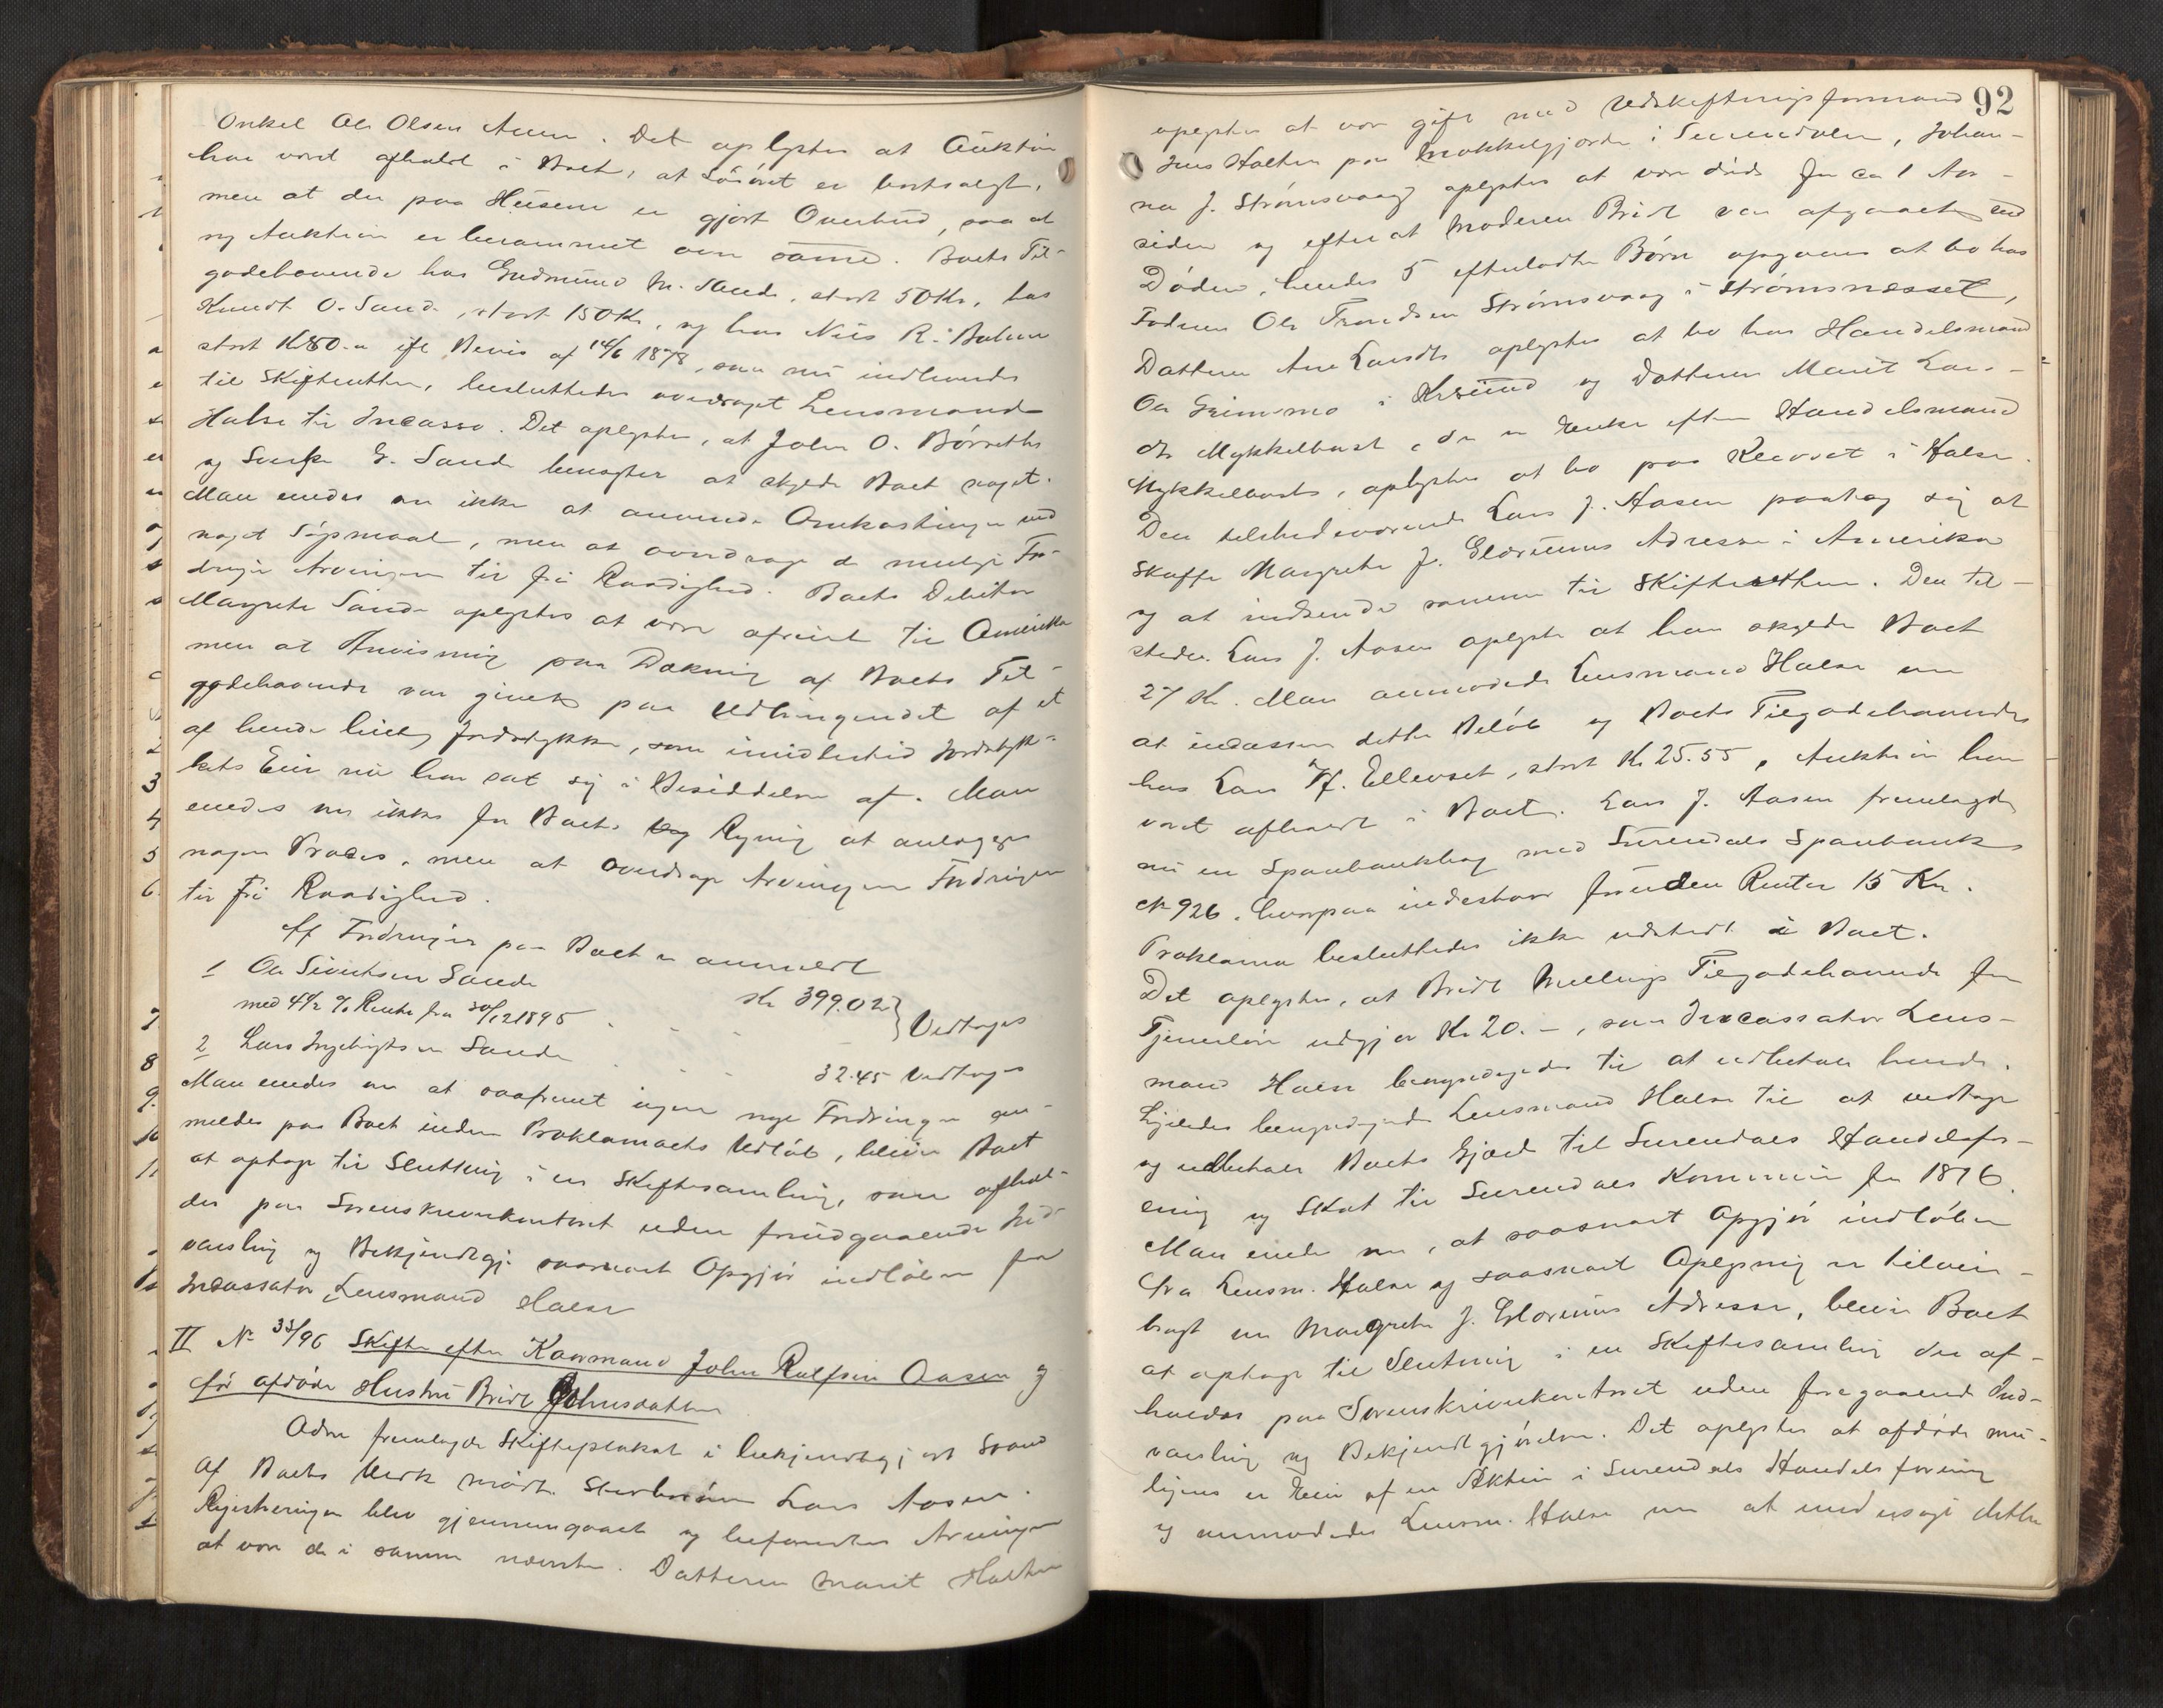 Onkel Ole Olsen Aune. Det oplystes at Auktion
har været afholdt i Boet, at Løsøret er bortsolgt,
men at der paa Husene er gjort Overbud, saa at
ny Auktion er berammet over samme. Boets Til-
godehavende hos Gudmund M. Sande, stort 50 Kr, hos
Knudt O. Sande, stort 150 Kr, og hos Nils R. Bolme
stort Kr 80.- ifl Bevis af 14/6 1878, som nu indhændes
til Skifteretten, besluttedes overdraget Lensmand
Halse til Incasso. Det oplystes, at John O. Børseths
og G. Sande benegter at skylde Boet noget.
Man enedes om ikke at anvende Omkostninger ved
noget Søgsmaal, men at overdrage de mulige For-
dringer Arvingerne til fri Raadighed. Boets Debitor
Margrete Sande oplystes at være afreist til Amerika
men at Anvisning paa Dækning af Boets Til-
godehavende var givet paa Udbringendet af et
af hende leiet Jordstykke, som imidlertid Jordstyk-
kets Eier nu har sat sig i Besiddelse af. Man
enedes om ikke for Boets Regning at anlægge
nogen Proces, men at overdrage Arvingerne Fordringen
til fri Raadighed.
Af Fordringer paa Boet er anmeldt
1 Ole Sivertsen Sande
med 4 1/2 % Rente fra 30/12 1895 . - - Kr 399.02 } Vedtoges
2 Lars Ingebrigtsen Sande . - - 32.45 Vedtoges
Man enedes om at saafremt ingen nye Fordringer an-
meldes paa Boet inden Proklamaets Udløb, bliver Boet
at optage til Slutning i en Skiftesamling, som afhol-
des paa Sorenskriverkontoret uden forudgaaende Ind-
varsling og Bekjendtgj. saasnart Opgjør indløber fra
Incassator, Lensmand Halse
II No 33/96 Skifte efter Kaarmand John Rolfsen Aasen og
før afdøde Hustru Brit Johnsdatter
Adm fremlagde Skifteplakat i bekjendtgjort Stand
Af Boets Vedk mødte Stervbosøn Lars Aasen.
Registeringen blev gjennemgaaet og befandtes Arvingerne
at være de i samme nævnte. Datteren Marit Halten
92
oplystes at være gift med Udskiftningsformand
Jens Halten paa Mokkelgjerde i Surendalen, Johan-
na J. Strømsvaag oplystes at være død for ca 1 Aar
siden og efter at Moderen Brit var afgaaet ved
Døden, hendes 5 efterladte Børn opgaves at bo hos
Faderen Ole Trondsen Strømsvaag i Strømsnesset,
Datteren Ane Larsdtr oplystes at bo hos Handelsmand
Ole Grimsmo i Krsund og Datteren Marit Lars-
dtr Mykkelbust, der er Enke efter Handelsmand
Mykkelbust, oplystes at bo paa Klevset i Halse.
Den tilstedeværende Lars J. Aasen paatog sig at
skaffe Margrete J. Glærums Adresse i Amerika
og at indsende samme til Skifteretten. Den til-
stedev. Lars J. Aasen oplyste at han skylder Boet
27 Kr. Man anmodede Lensmand Halse om
at incassere dette Beløb og Boets Tilgodehavende
hos Lars H. Ellevset, stort Kr 25.55, Auktion har
været afholdt i Boet. Lars J. Aasen fremlagde
nu en Sparebankbog med Surendals Sparebank
No 926, hvorpaa indestaar foruden Renter 15 Kr.
Proklama besluttedes ikke udstedt i Boet.
Det oplystes, at Brit Mellings Tilgodehavende for
Tjenerløn udgjør Kr 20.-, som Incassator Lens-
mand Halse bemyndigedes til at udbetale hende.
Ligeledes bemyndigedes Lensmand Halse til at vedtage
og udbetale Boets Gjæld til Surendals Handelsfor-
ening og Skat til Surendals Kommune for 1896.
Man enedes om, at saasnart Opgjør indløber
fra Lensm. Halse og saasnart Oplysning er tilveie-
bragt om Margrete J. Glærums Adresse, bliver Boet
at optage til Slutning i en Skiftesamling der af-
holdes paa Sorenskriverkontoret uden foregaaende Ind-
varsling og Bekjendtgjørelse. Det oplystes at afdøde mu-
ligens er Eier af en Aktie i Surendals Handelsforening
og anmodedes Lensm. Halse om at undersøge dette